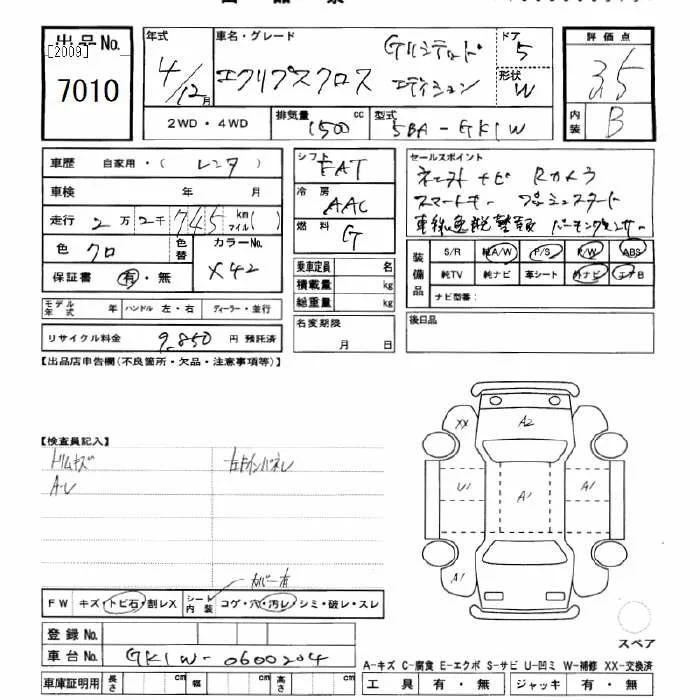 出品No.
[2009]
7010
年式
4/12月
車名・グレード
エクリプスクロス
Gリミテッド
エディション
ドア
5
形状
W
評価点
3.5
内装
B
2WD・4WD
排気量
1500 cc
型式
5BA-GK1W
車歴 自家用・( レンタ )
車検 年 月
走行 2万2千745 km マイル ( )
色 クロ
色替
カラーNo.
X42
保証書 有・無
シフト
FAT
冷房
AAC
燃料
G
乗車定員 名
積載量 kg
総重量 kg
セールスポイント
ナビ Rカメラ
スマートキー プッシュスタート
車線逸脱警報 パーキングセンサー
装備品
S/R 純A/W P/S P/W ABS
純TV 純ナビ 革シート 外ナビ エアB
ナビ型番:
モデル年式 年 ハンドル 左・右 ディーラー・並行
リサイクル料金 9,850 円 預託済
名変期限
月 日
後日品
【出品店申告欄(不良箇所・欠品・注意事項等)】
【検査員記入】
トリムキズ
A-U
XX
A2
U1
A1
A1
A1
カバー有
FW キズ・トビ石・割レX
シート内装 コゲ・穴・汚レ・シミ・破レ・スレ
登録No.
車台No. GK1W-0600204
車庫証明用 長さ cm 幅 cm 高さ cm
スペア
A-キズ C-腐食 E-エクボ S-サビ U-凹ミ W-補修 XX-交換済
工具 有・無 ジャッキ 有・無